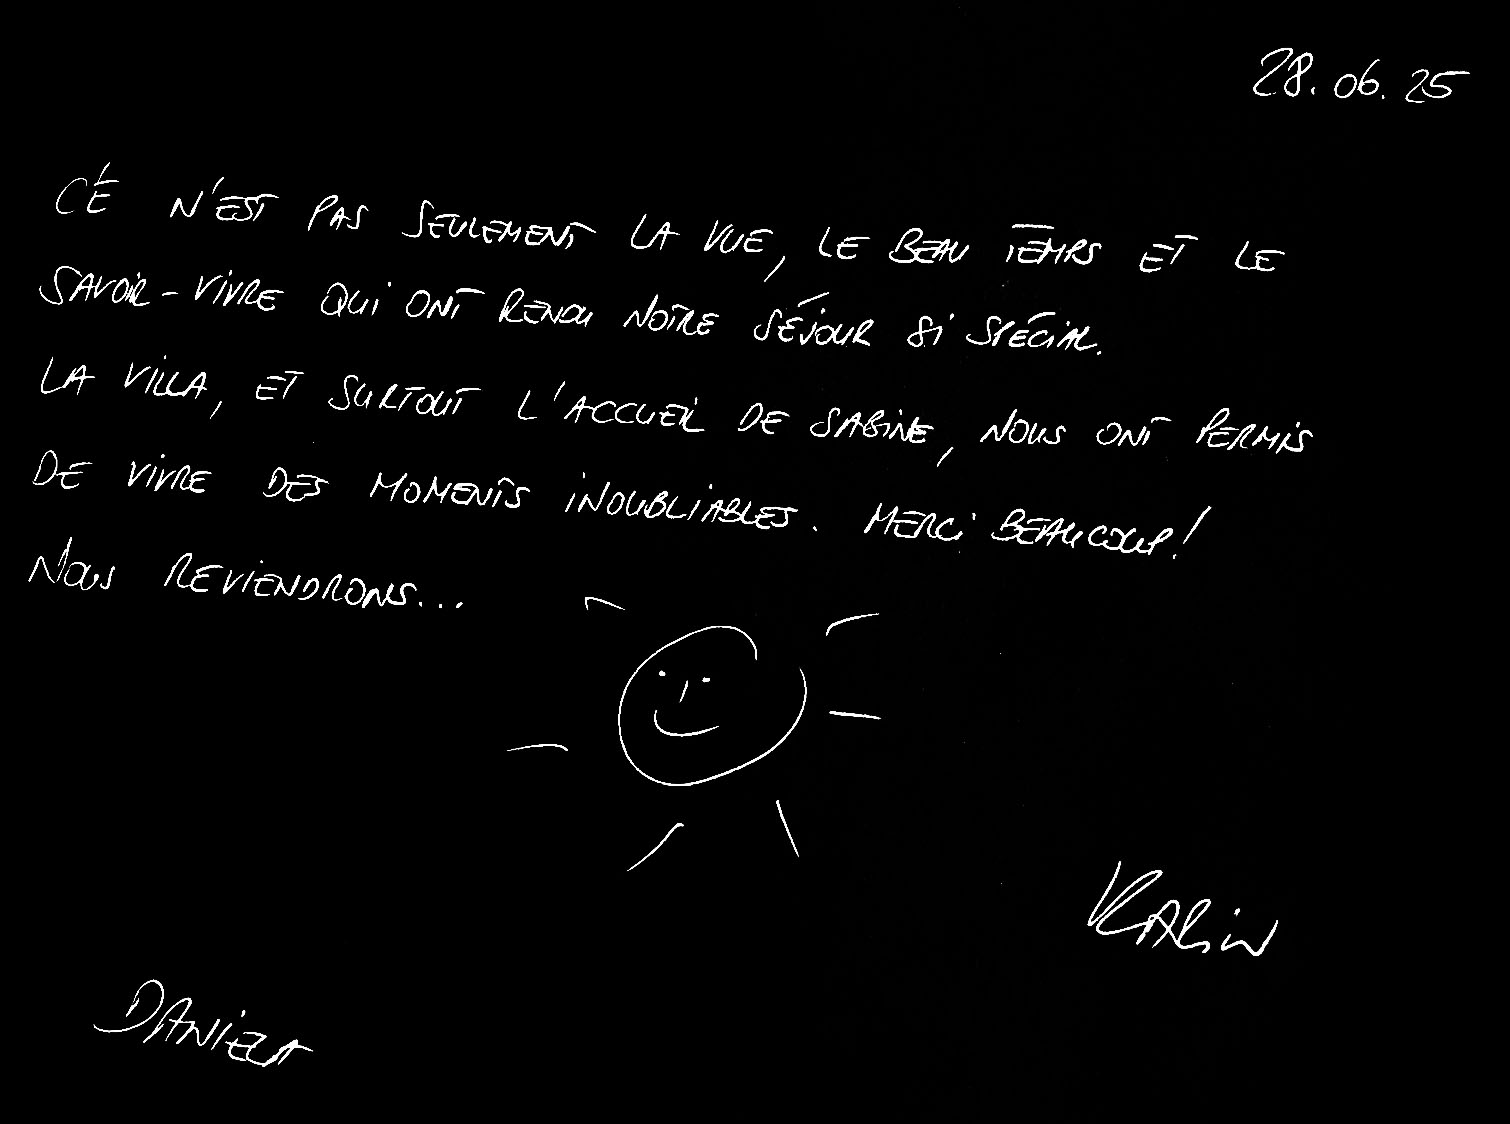 28.06.25
CÉ N'EST PAS SEULEMENT LA VUE, LE BEAU TEMPS ET LE
SAVOIR-VIVRE QUI ONT RENDU NOTRE SÉJOUR SI SPÉCIAL.
LA VILLA, ET SURTOUT L'ACCUEIL DE SABINE, NOUS ONT PERMIS
DE VIVRE DES MOMENTS INOUBLIABLES. MERCI BEAUCOUP!
NOUS REVIENDRONS...
KARIN
DANIELA